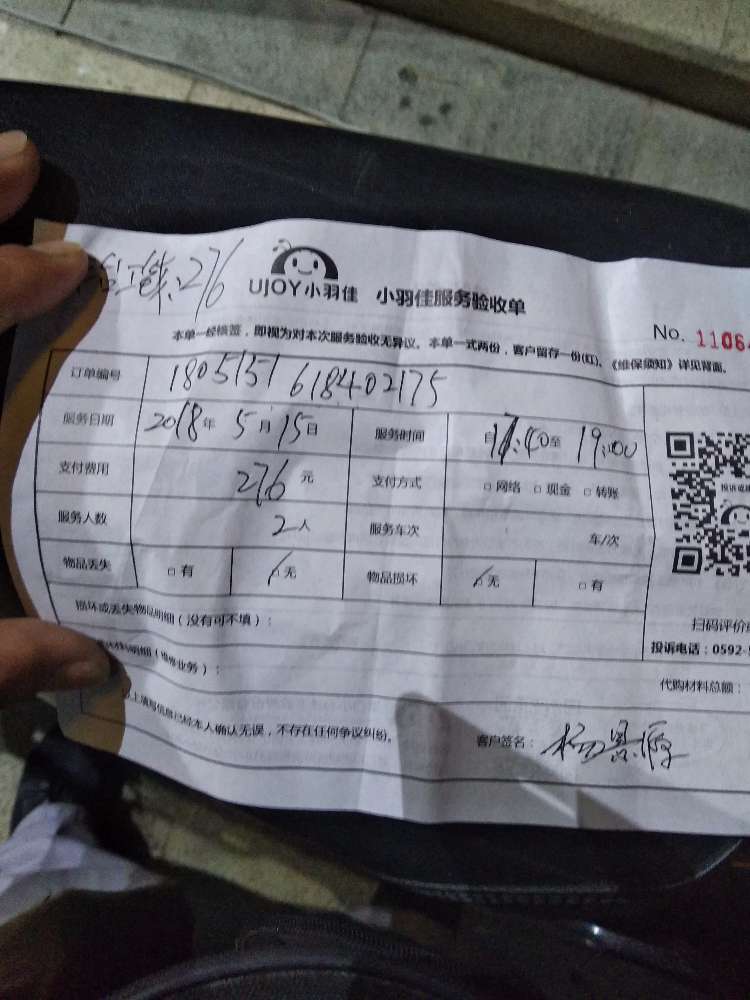 276
UJOY小羽佳 小羽佳服务验收单
No. 11064
本单一经核签，即视为对本次服务验收无异议。本单一式两份，客户留存一份(红)。《维保须知》详见背面。
订单编号 1805151618402175
服务日期 2018年 5月 15日 服务时间 自 17:40至 19:00
支付费用 276 元 支付方式 □网络 □现金 □转账
服务人数 2人 服务车次 车/次
物品丢失 □有 □无 物品损坏 □无 □有
投诉或
损坏或丢失物品明细（没有可不填）：
扫码评价
投诉电话：0592-5
材料明细（维修业务）：
代购材料总额：
以上填写信息已经本人确认无误，不存在任何争议纠纷。
客户签名：